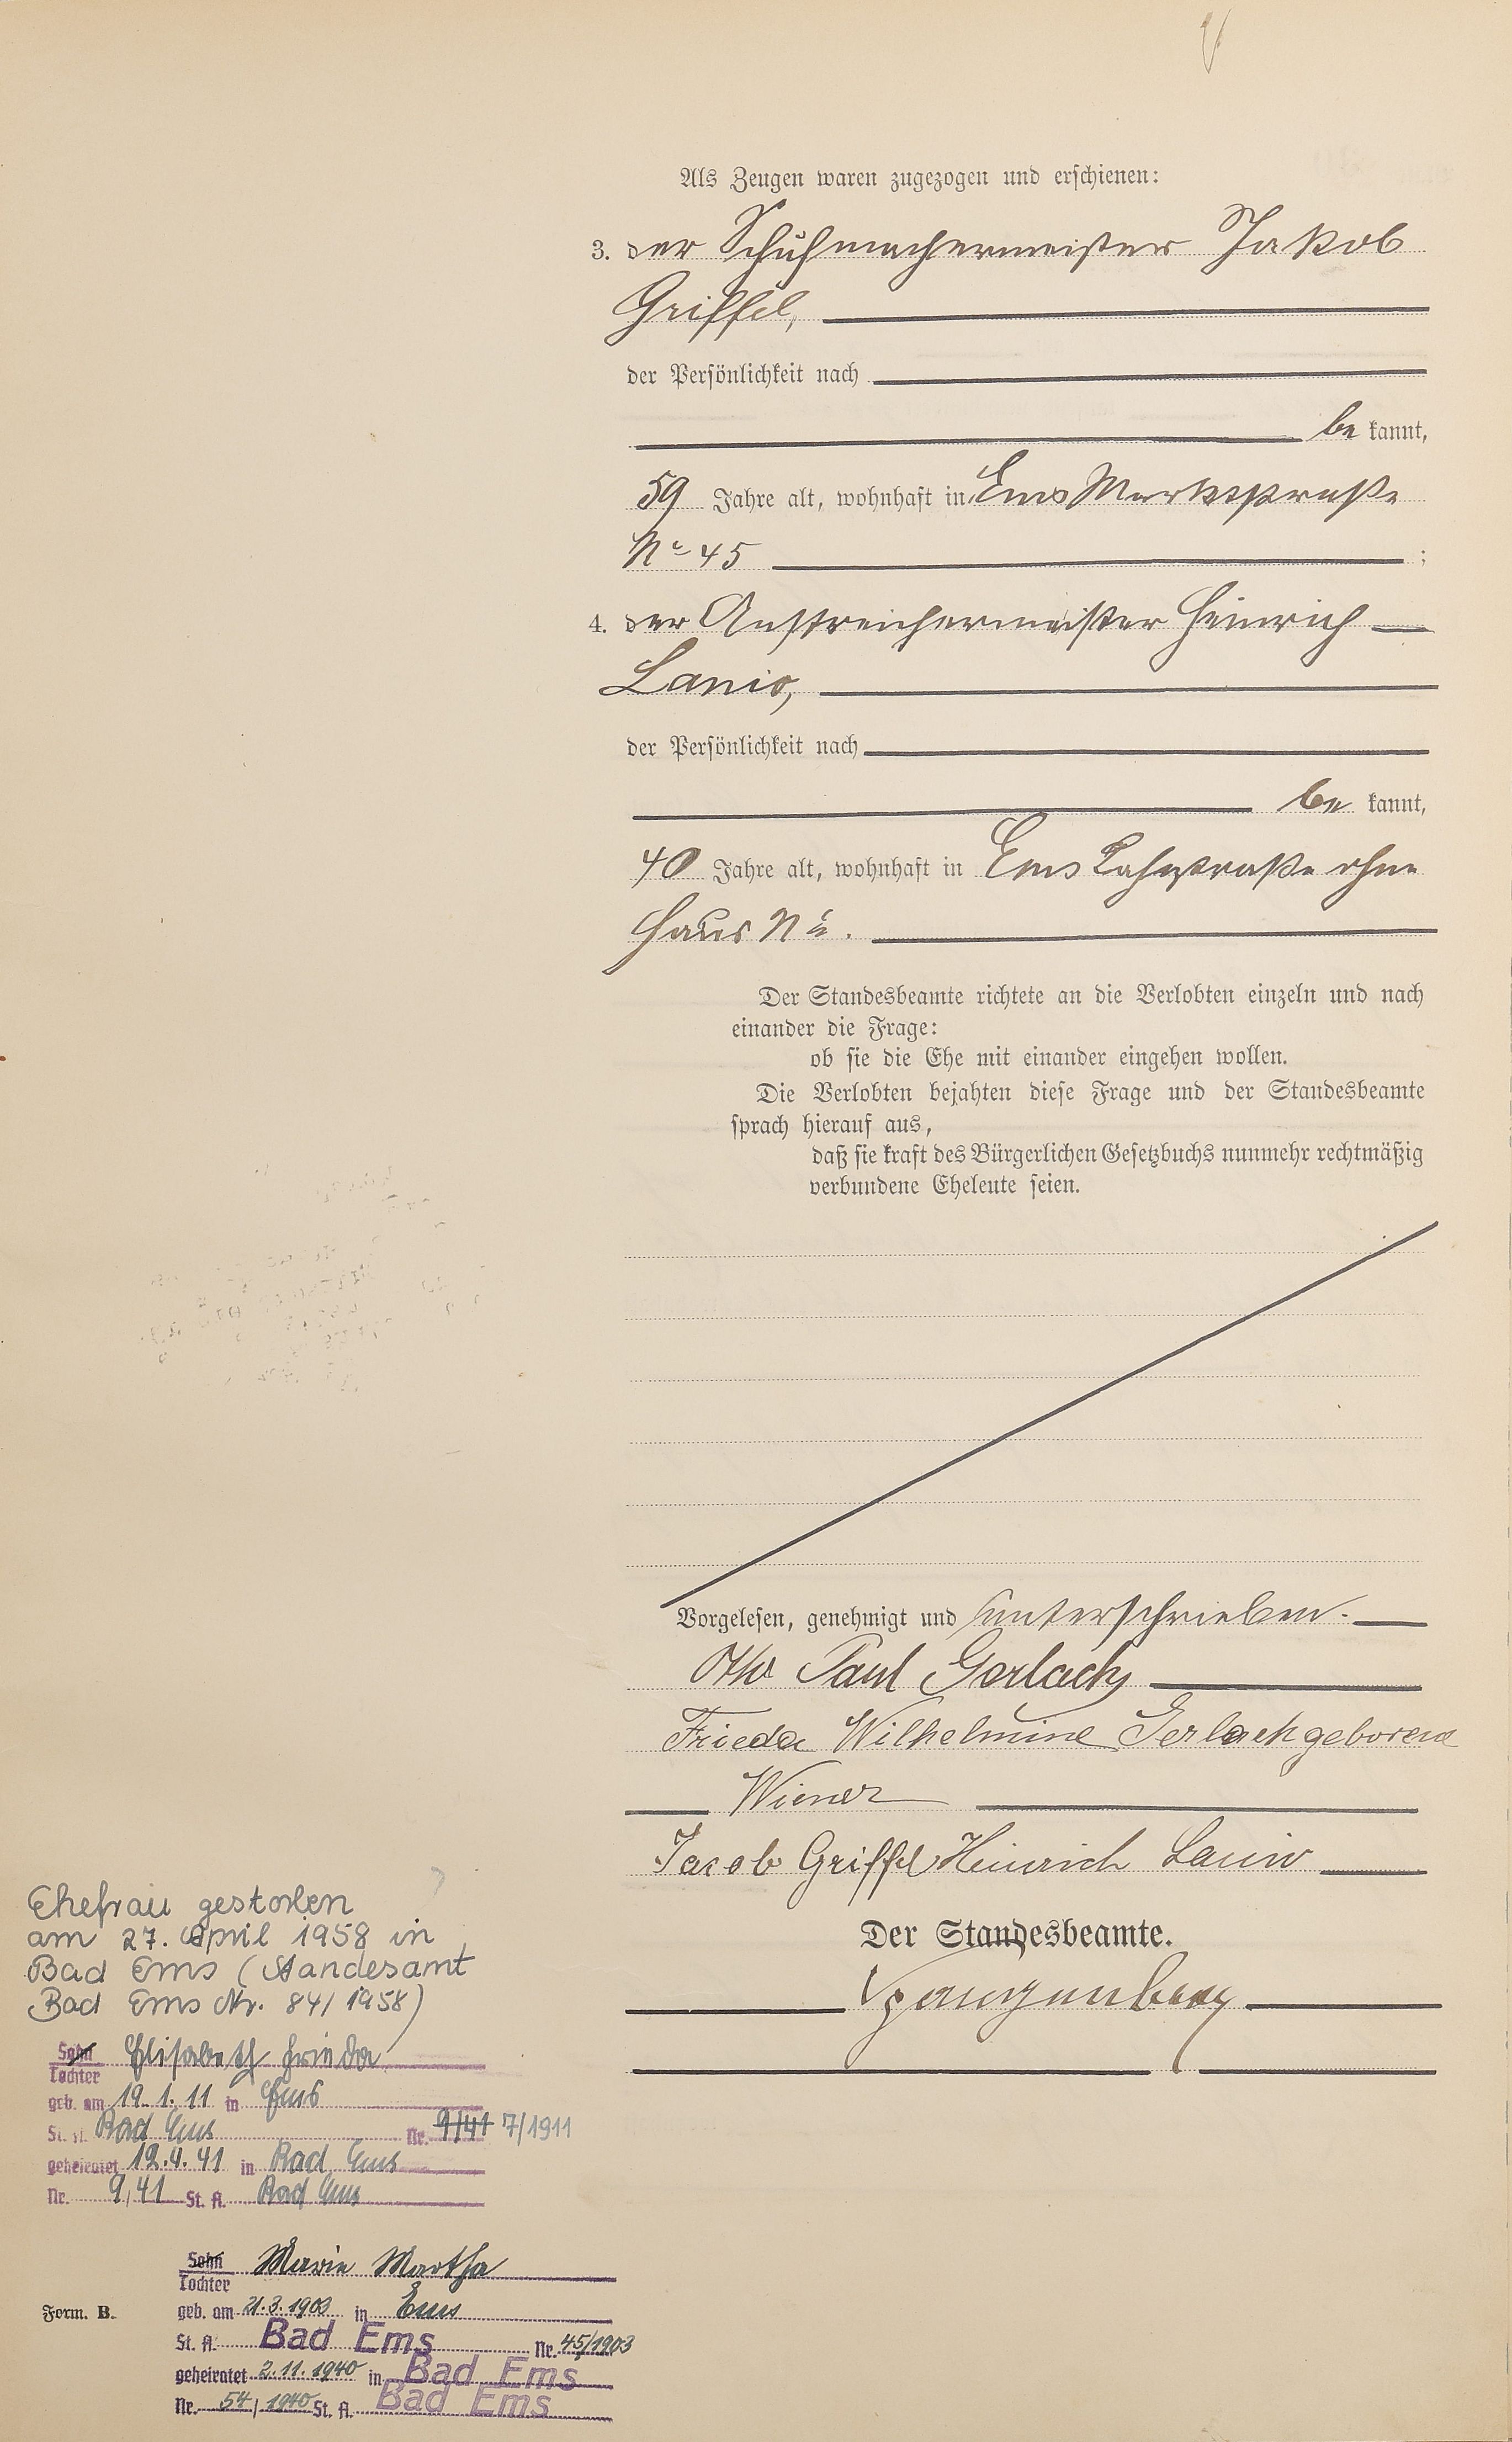 Als Zeugen waren zugezogen und erschienen:
3. der Schuhmachermeister Jakob
Griffel,
der Persönlichkeit nach
be kannt,
59 Jahre alt, wohnhaft in Ems Marktstraße
No 45 ;
4. der Anstreichermeister Heinrich
Lanio,
der Persönlichkeit nach
be kannt,
40 Jahre alt, wohnhaft in Ems Lahnstraße ohne
Haus No.
Der Standesbeamte richtete an die Verlobten einzeln und nach
einander die Frage:
ob sie die Ehe mit einander eingehen wollen.
Die Verlobten bejahten diese Frage und der Standesbeamte
sprach hierauf aus,
daß sie kraft des Bürgerlichen Gesetzbuchs nunmehr rechtmäßig
verbundene Eheleute seien.
Vorgelesen, genehmigt und unterschrieben.
Otto Paul Gerlach
Frieda Wilhelmine Gerlach geborene
Wiener
Jacob Griffel Heinrich Lanio
Der Standesbeamte.
Spangenberg
Ehefrau gestorben
am 27. April 1958 in
Bad Ems (Standesamt
Bad Ems Nr. 84/1958)
Sohn Elisabeth Frieda
Tochter
geb. am 19.1.11 in Ems
St. A. Bad Ems Nr. 9/41 7/1911
geheiratet 12.4.41 in Bad Ems
Nr. 9/41 St. A. Bad Ems
Sohn Marie Martha
Tochter
Form. B. geb. am 21.3.1903 in Ems
St. A. Bad Ems Nr. 45/1903
geheiratet 2.11.1940 in Bad Ems
Nr. 54/1940 St. A. Bad Ems